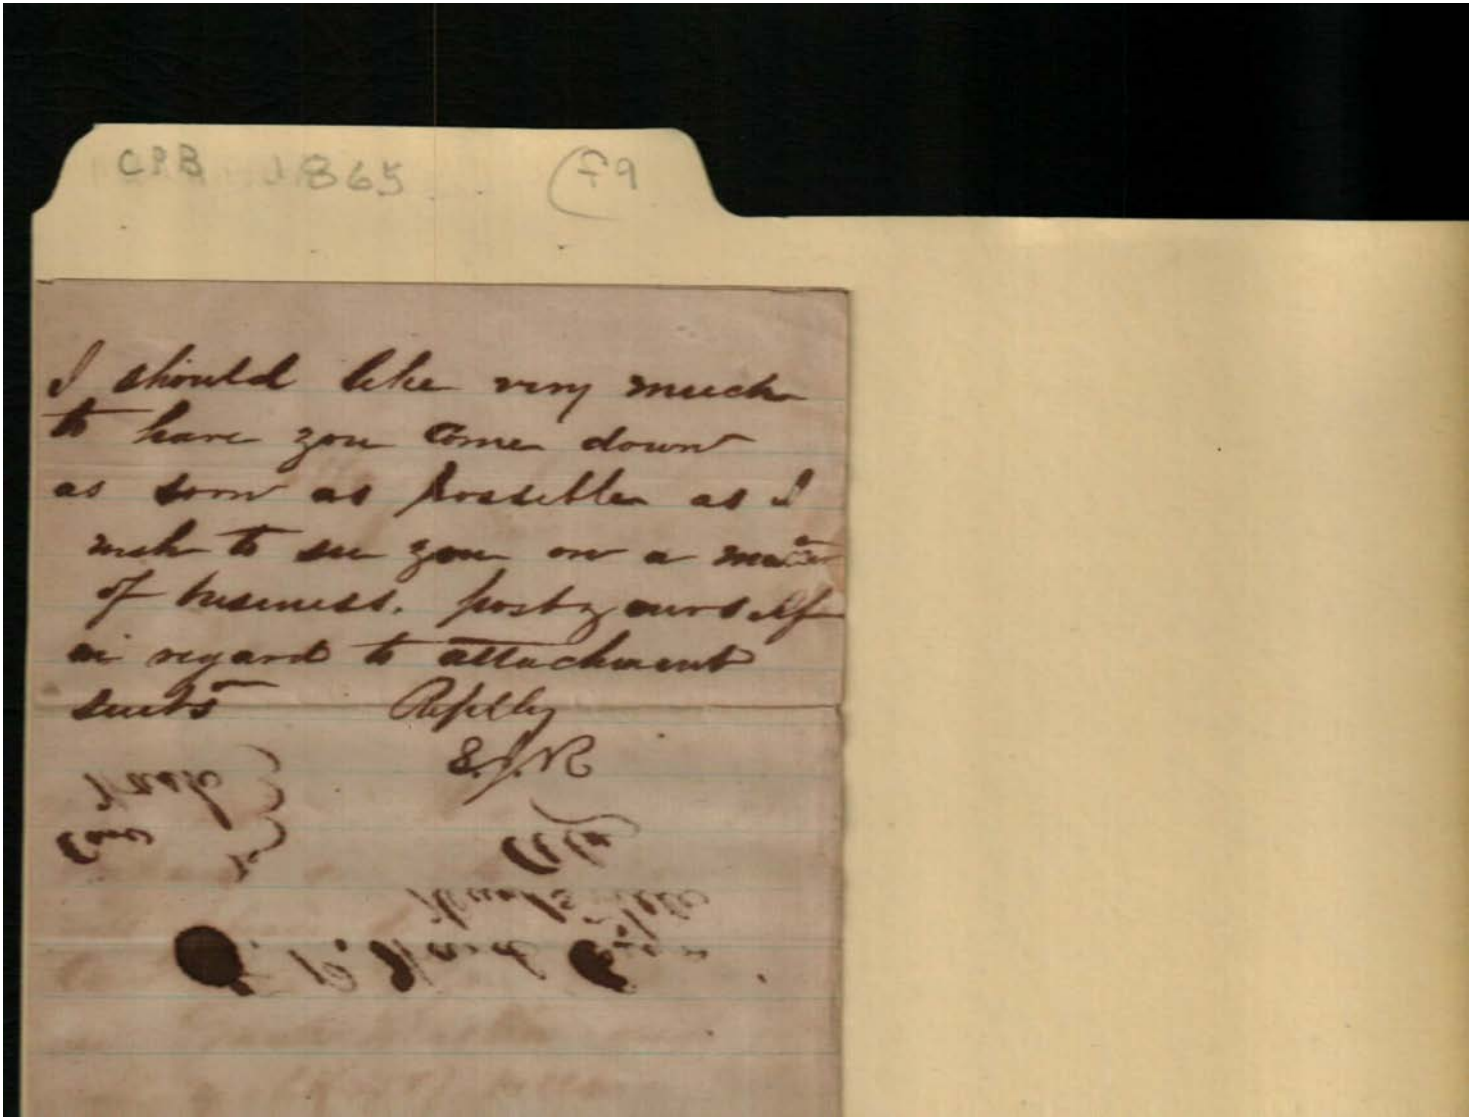 CPB 1865 (f9
I should like very much
to have you come down
as soon as possible as I
wish to see you on a matter
of business. post yourself
in regard to attachment
suits Resptlly
E.J.R
Care
Ala
Huntsville
P. Ward Esqr